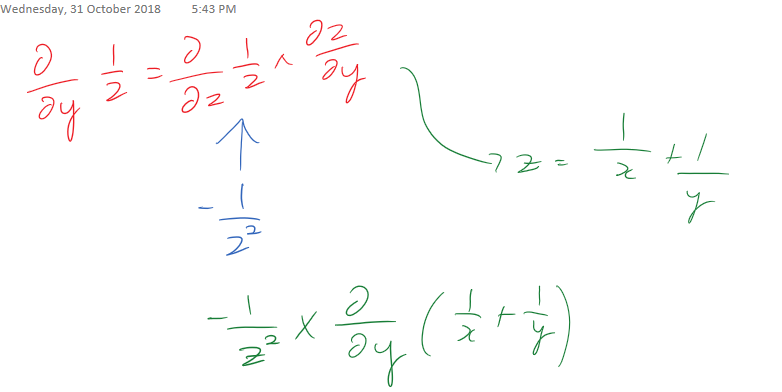 Wednesday, 31 October 2018 5:43 PM
∂/∂y 1/z = ∂/∂z 1/z × ∂z/∂y
→ z = 1/x + 1/y
- 1/z²
- 1/z² × ∂/∂y (1/x + 1/y)